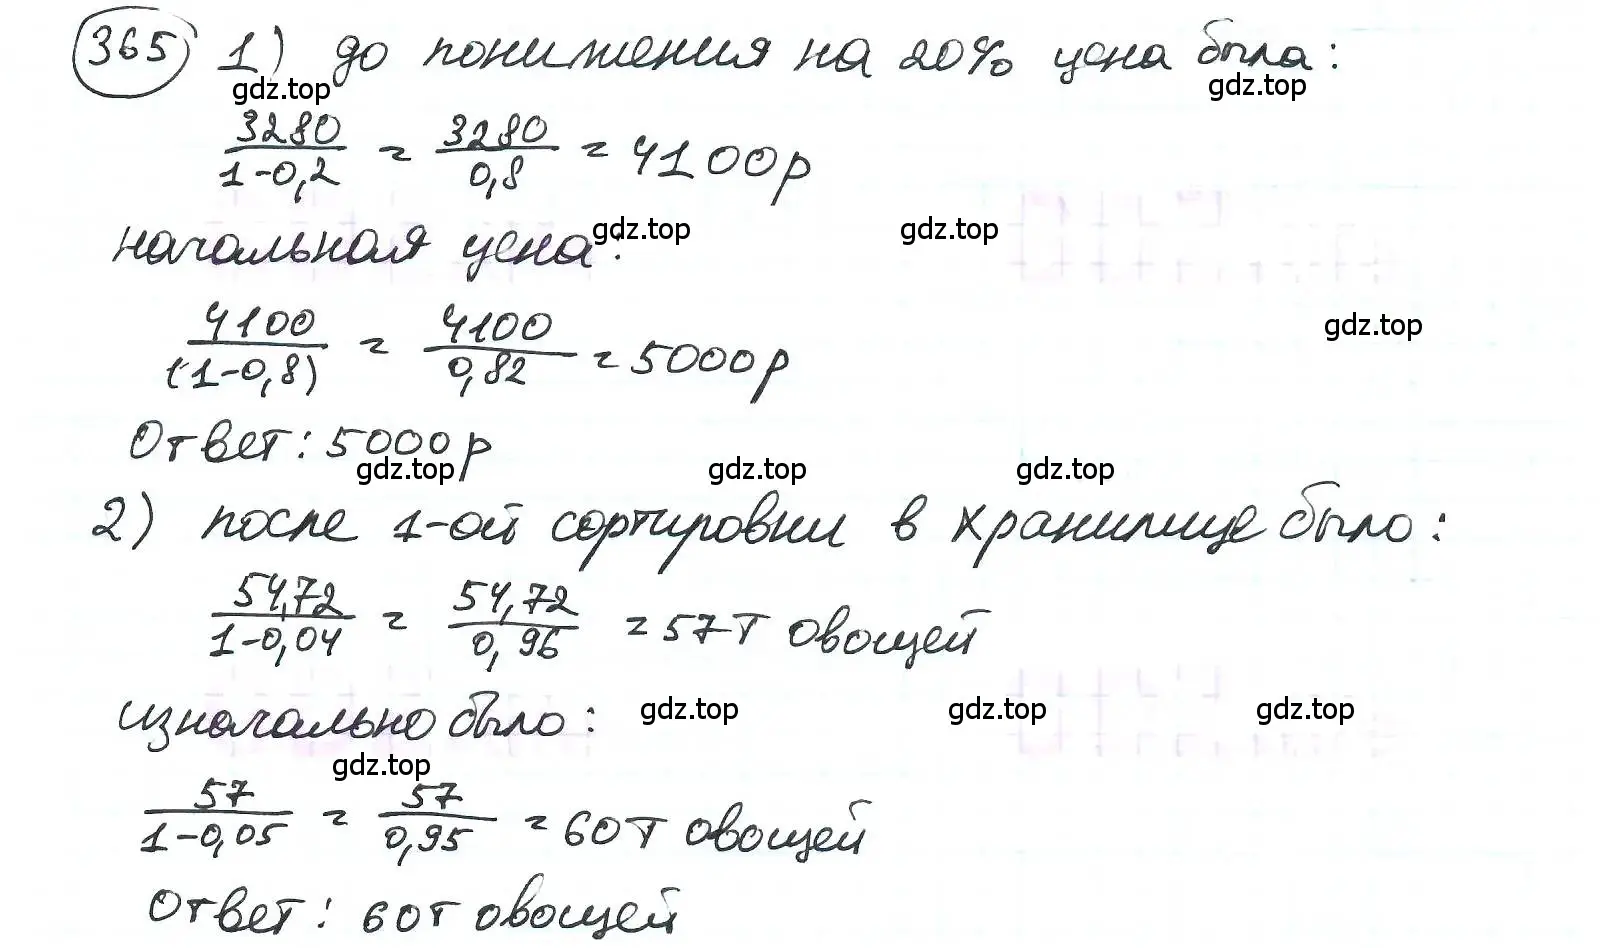 365 1) до понижения на 20% цена была:
gdz.top gdz.top
3280/(1-0,2) = 3280/0,8 = 4100р
начальная цена: gdz.top gdz.top
4100/(1-0,8) = 4100/0,82 = 5000р gdz.top
Ответ: 5000р
gdz.top gdz.top gdz.top
2) после 1-ой сортировки в хранилище было:
54,72/(1-0,04) = 54,72/0,96 = 57т овощей
изначально было: gdz.top gdz.top gdz.top
gdz.top
57/(1-0,05) = 57/0,95 = 60т овощей
Ответ: 60т овощей